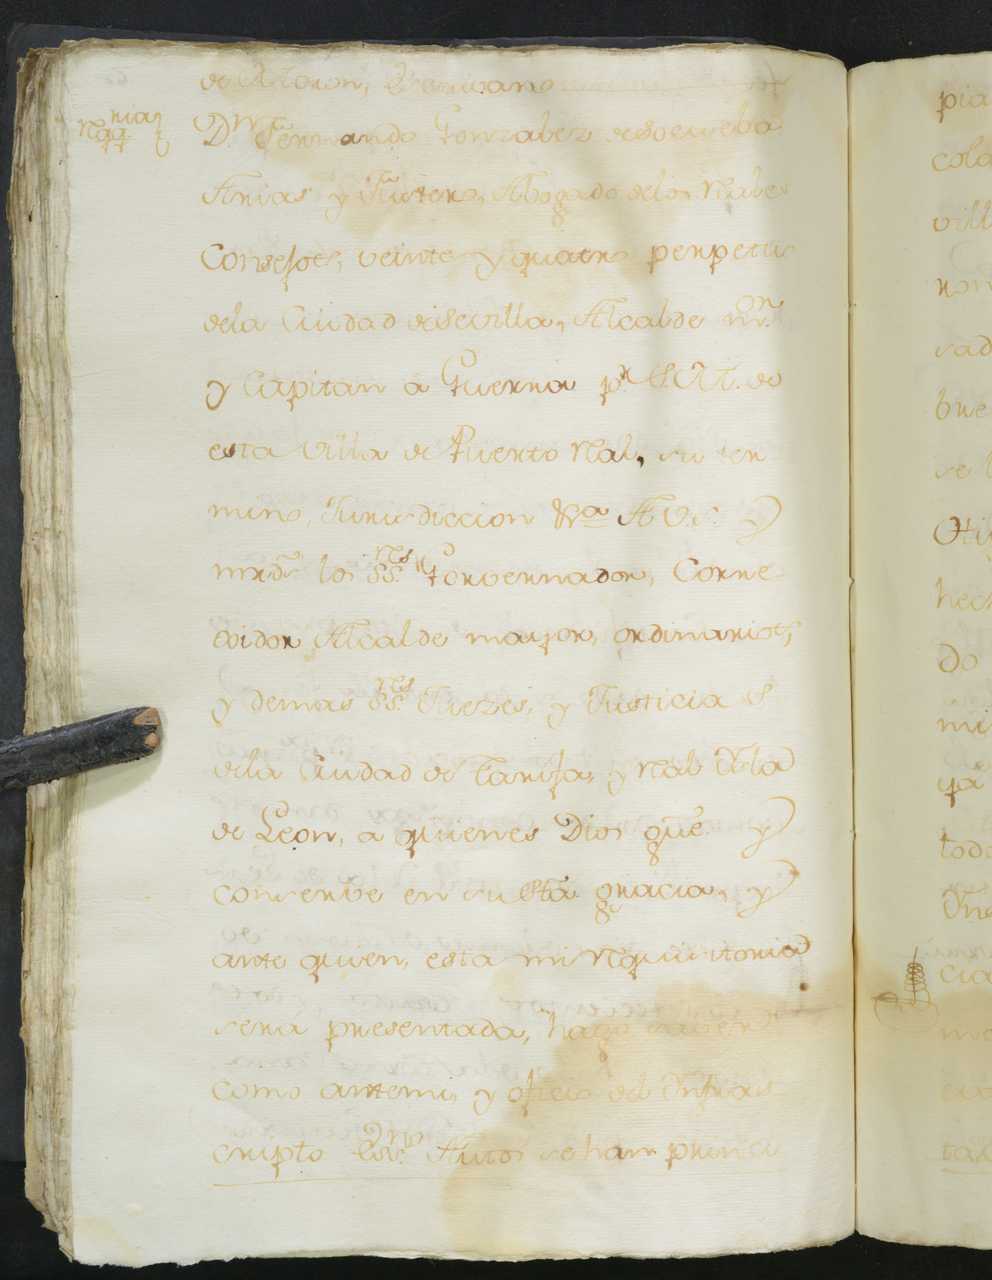 de Alocon, Escrivano
Rqq.rias D.n Fernando Gonzalez de Socueba
Arias y Fuster, Abogado delos Rales
Consejos, veinte y quatro perpetuo
dela Ciudad de Sevilla, Alcalde m.or
y Capitan a Guerra p.r S. M. de
esta Villa de Puerto Ral, su ter
mino, Jurisdiccion &ra A Vs. y
mrds los SS.res Governador, Corre-
gidor Alcalde mayor, ordinarios,
y demas SS.res Juezes, y Justicias
dela Ciudad de Tarifa, y Ral Isla
de Leon, a quienes Dios gũe y
conserve en su sta gracia, y
ante quien, esta mi Rquisitoria
sera presentada, hago saver
como antemi, y oficio del Infras-
cripto Ess.no Autos se han princi
pia
colo
vill
ron
rad
bue
se
Oti
hech
do
mi
todo
cia